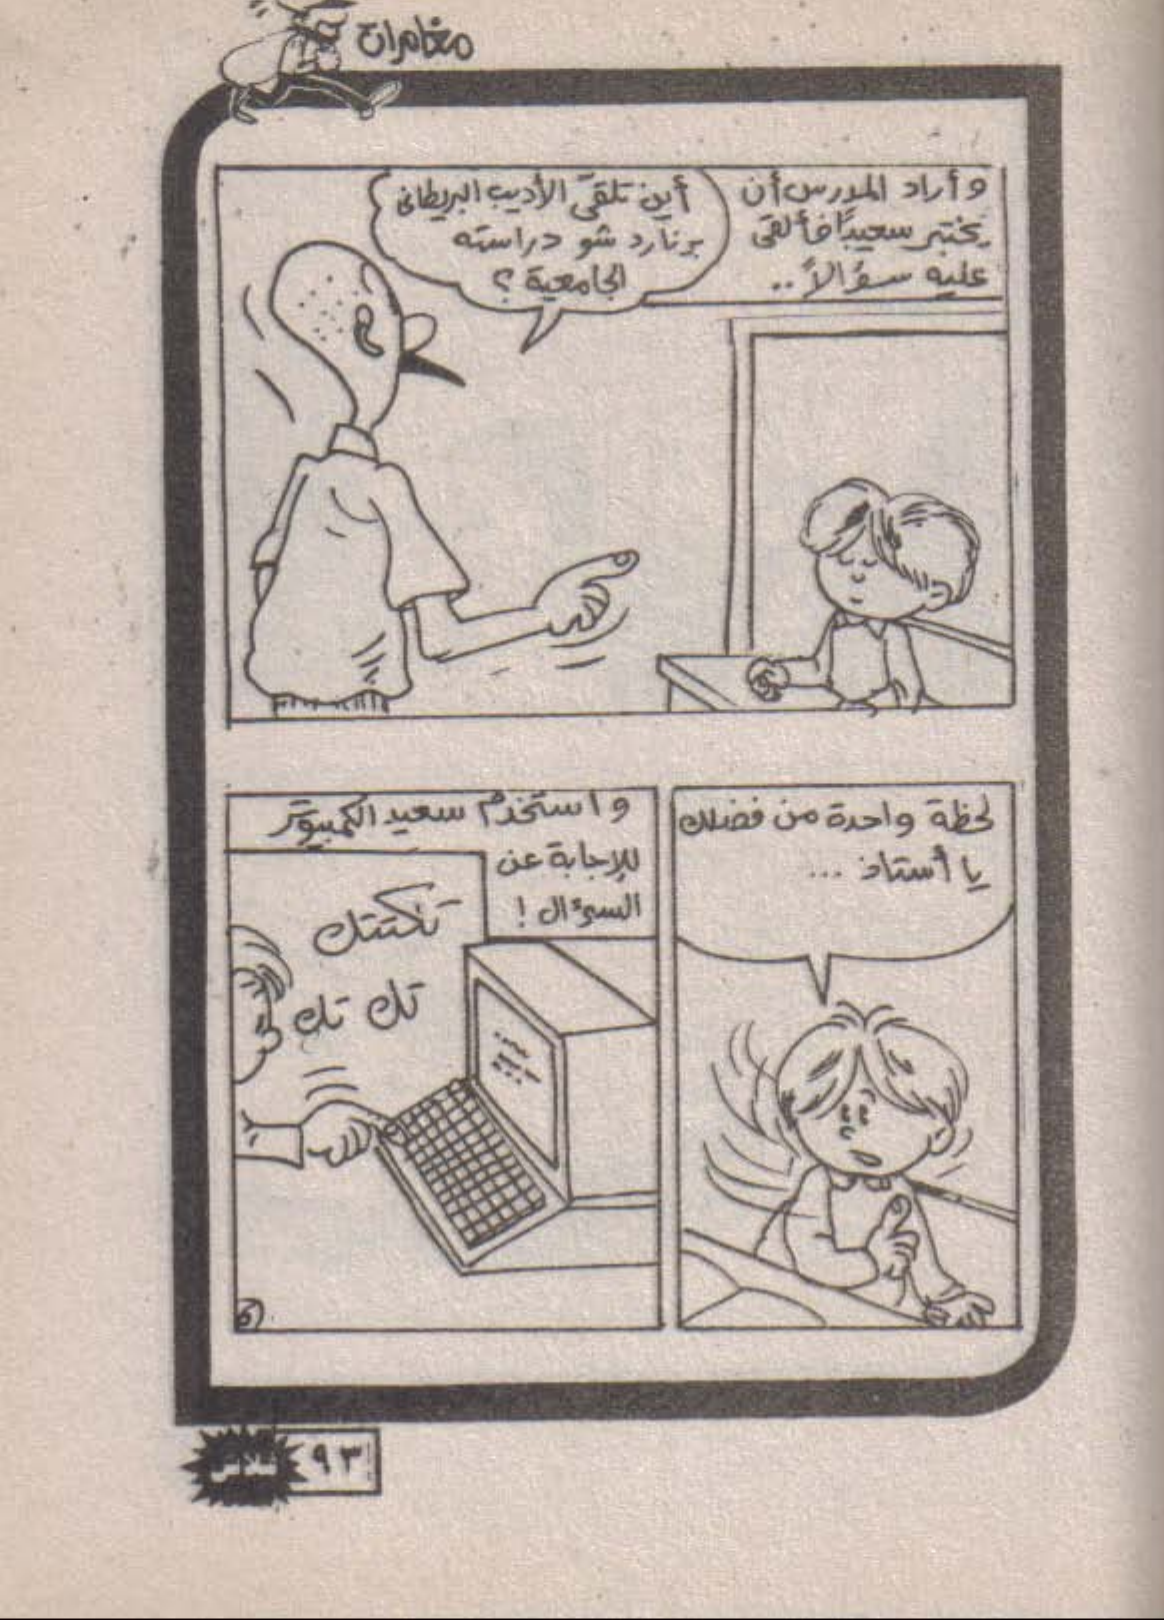 مغامرات
وأراد المدرس أن
يختبر سعيداً فألقى
عليه سؤالاً ..
أين تلقى الأديب البريطانى
برنارد شو دراسته
الجامعية ؟
لحظة واحدة من فضلك
يا أستاذ ...
واستخدم سعيد الكمبيوتر
للإجابة عن
السؤال !
تكتتك
تك تك
٩٣
فلاش